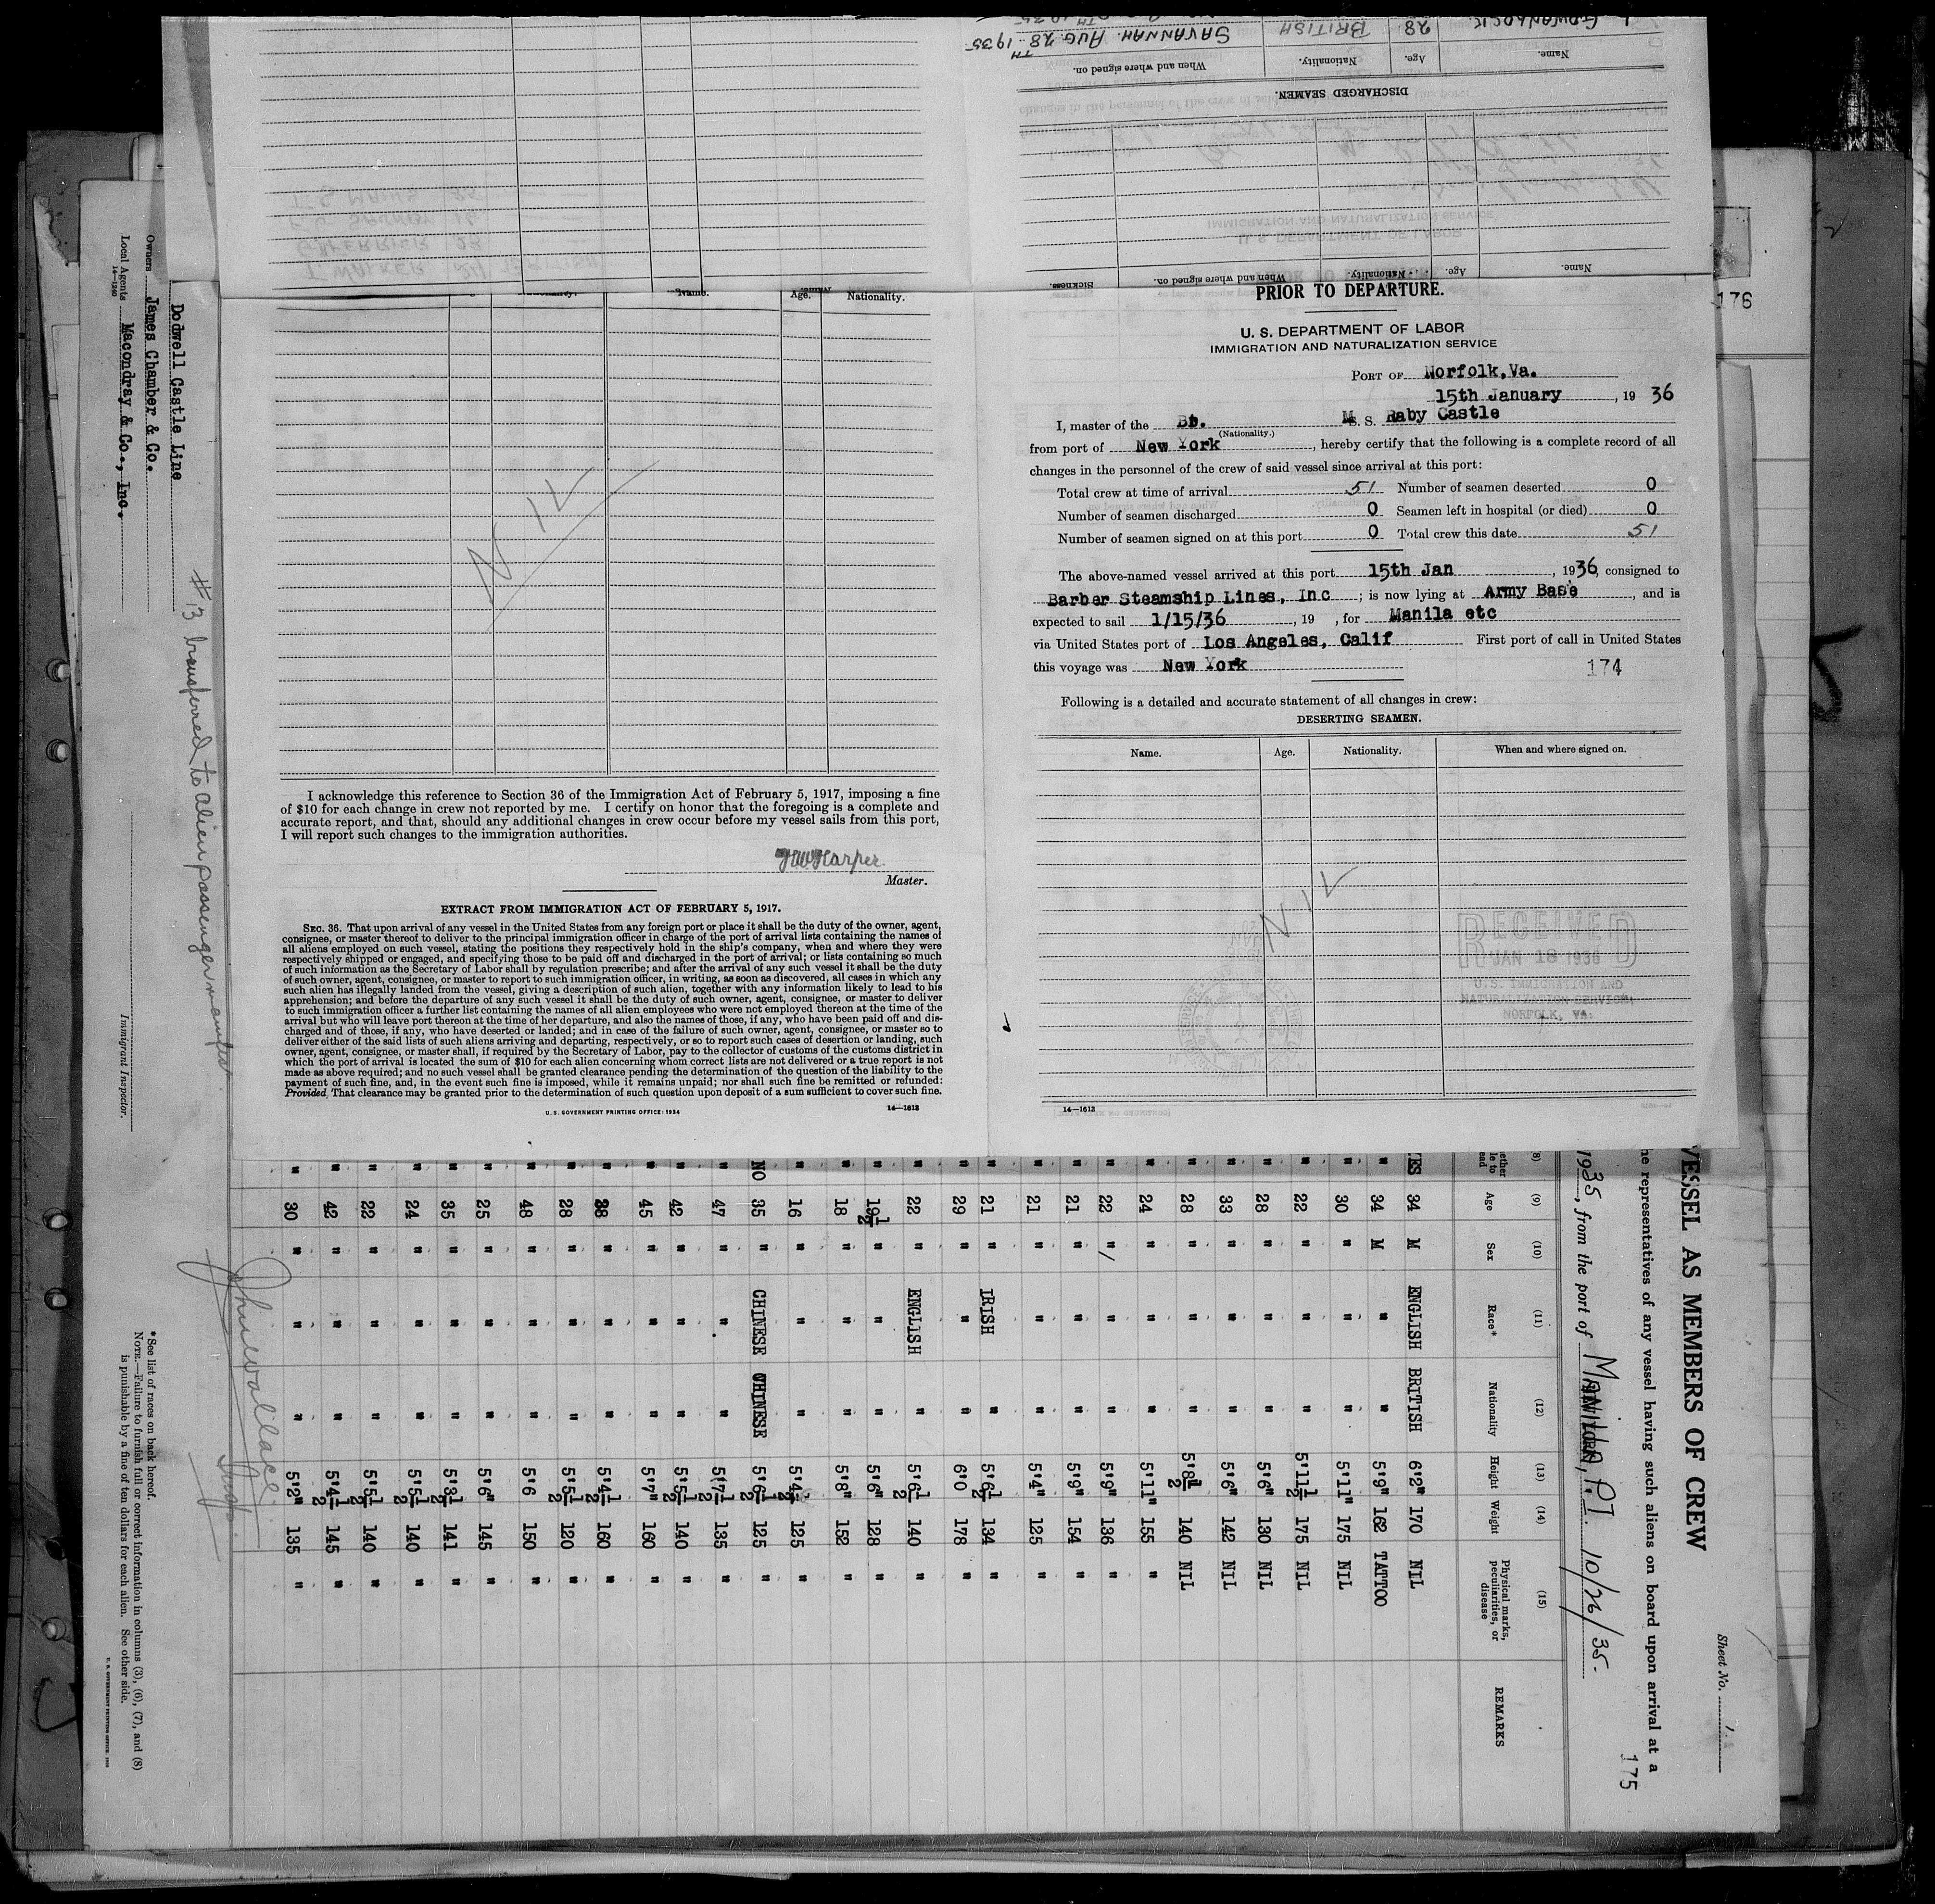 GOWANLOCK. 28 BRITISH SAVANNAH. AUG. 28TH 1935
Name. Age. Nationality. When and where signed on.
DISCHARGED SEAMEN.
Name. Age. Nationality. When and where signed on. Sickness.
Name. Age. Nationality.
I acknowledge this reference to Section 36 of the Immigration Act of February 5, 1917, imposing a fine
of $10 for each change in crew not reported by me. I certify on honor that the foregoing is a complete and
accurate report, and that, should any additional changes in crew occur before my vessel sails from this port,
I will report such changes to the immigration authorities.
Harper
Master.
EXTRACT FROM IMMIGRATION ACT OF FEBRUARY 5, 1917.
SEC. 36. That upon arrival of any vessel in the United States from any foreign port or place it shall be the duty of the owner, agent,
consignee, or master thereof to deliver to the principal immigration officer in charge of the port of arrival lists containing the names of
all aliens employed on such vessel, stating the positions they respectively hold in the ship's company, when and where they were
respectively shipped or engaged, and specifying those to be paid off and discharged in the port of arrival; or lists containing so much
of such information as the Secretary of Labor shall by regulation prescribe; and after the arrival of any such vessel it shall be the duty
of such owner, agent, consignee, or master to report to such immigration officer, in writing, as soon as discovered, all cases in which any
such alien has illegally landed from the vessel, giving a description of such alien, together with any information likely to lead to his
apprehension; and before the departure of any such vessel it shall be the duty of such owner, agent, consignee, or master to deliver
to such immigration officer a further list containing the names of all alien employees who were not employed thereon at the time of the
arrival but who will leave port thereon at the time of her departure, and also the names of those, if any, who have been paid off and dis-
charged and of those, if any, who have deserted or landed; and in case of the failure of such owner, agent, consignee, or master so to
deliver either of the said lists of such aliens arriving and departing, respectively, or so to report such cases of desertion or landing, such
owner, agent, consignee, or master shall, if required by the Secretary of Labor, pay to the collector of customs of the customs district in
which the port of arrival is located the sum of $10 for each alien concerning whom correct lists are not delivered or a true report is not
made as above required; and no such vessel shall be granted clearance pending the determination of the question of the liability to the
payment of such fine, and, in the event such fine is imposed, while it remains unpaid; nor shall such fine be remitted or refunded:
Provided, That clearance may be granted prior to the determination of such question upon deposit of a sum sufficient to cover such fine.
U. S. GOVERNMENT PRINTING OFFICE: 1934 14—1613
PRIOR TO DEPARTURE.
U. S. DEPARTMENT OF LABOR
IMMIGRATION AND NATURALIZATION SERVICE
PORT OF Norfolk,Va.
15th January, 19 36
I, master of the Br. M. S. Raby Castle
(Nationality.)
from port of New York, hereby certify that the following is a complete record of all
changes in the personnel of the crew of said vessel since arrival at this port:
Total crew at time of arrival 51 Number of seamen deserted 0
Number of seamen discharged 0 Seamen left in hospital (or died) 0
Number of seamen signed on at this port 0 Total crew this date 51
The above-named vessel arrived at this port 15th Jan, 1936, consigned to
Barber Steamship Lines, Inc; is now lying at Army Base, and is
expected to sail 1/15/36, 19 , for Manila etc
via United States port of Los Angeles, Calif First port of call in United States
this voyage was New York
174
Following is a detailed and accurate statement of all changes in crew:
DESERTING SEAMEN.
Name. Age. Nationality. When and where signed on.
NIL
RECEIVED
JAN 18 1936
U.S. IMMIGRATION AND
NATURALIZATION SERVICE
NORFOLK, VA.
14—1613
176
VESSEL AS MEMBERS OF CREW
Sheet No. 1
representatives of any vessel having such aliens on board upon arrival at a
175
1935, from the port of Manila, P.I. 10/26/35.
(8) (9) (10) (11) (12) (13) (14) (15)
Age Sex Race* Nationality Height Weight Physical marks, peculiarities, or disease REMARKS
YES 34 M ENGLISH BRITISH 6'2" 170 NIL
" 34 M " " 5'9" 162 TATTOO
" 30 " " " 5'11" 175 NIL
" 22 " " " 5'11½ 175 NIL
" 28 " " " 5'6" 130 NIL
" 33 " " " 5'6" 142 NIL
" 28 " " " 5'8½ 140 NIL
" 24 " " " 5'11" 155 "
" 22 " " " 5'9" 136 "
" 21 " " " 5'9" 154 "
" 21 " " " 5'4" 125 "
" 21 " IRISH " 5'6½ 134 "
" 29 " " " 6'0 178 "
" 22 " ENGLISH " 5'6½ 140 "
" 19½ " " " 5'6" 128 "
" 18 " " " 5'8" 152 "
" 16 " " " 5'4½ 125 "
NO 35 " CHINESE CHINESE 5'6½ 125 "
" 47 " " " 5'7½ 135 "
" 42 " " " 5'5½ 140 "
" 45 " " " 5'7" 160 "
" 38 " " " 5'4½ 160 "
" 28 " " " 5'5½ 120 "
" 48 " " " 5'6 150 "
" 25 " " " 5'6" 145 "
" 35 " " " 5'3½ 141 "
" 24 " " " 5'5½ 140 "
" 22 " " " 5'5½ 140 "
" 42 " " " 5'4½ 145 "
" 30 " " " 5'2" 135 "
#13 transferred to alien passenger manifest
Dodwell Castle Line
Owners James Chamber & Co.
Local Agents Macondray & Co., Inc.
14—1240
Immigrant Inspector.
*See list of races on back hereof.
NOTE.—Failure to furnish full or correct information in columns (3), (6), (7), and (8)
is punishable by a fine of ten dollars for each alien. See other side.